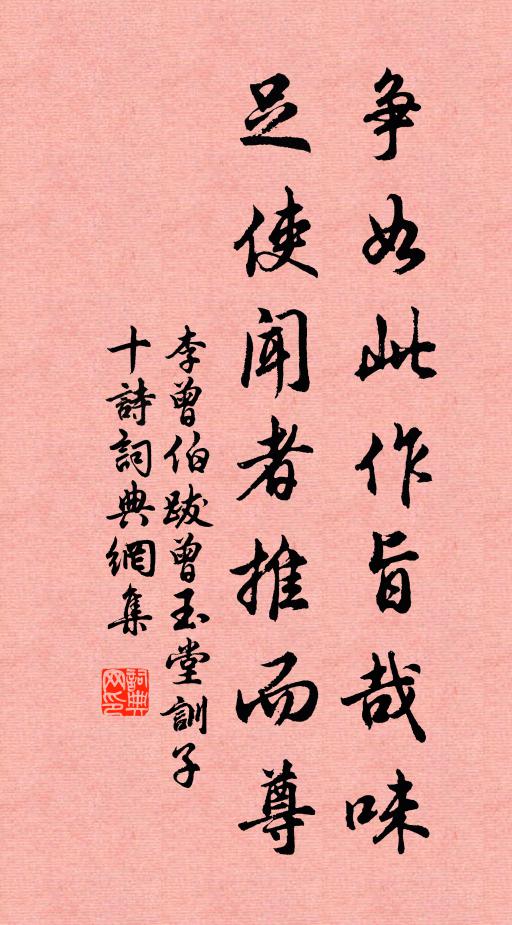 争如此作旨哉味
足使闻者推而尊
李曾伯跋曾玉堂訓子
十詩詞典網集
詞典
网印